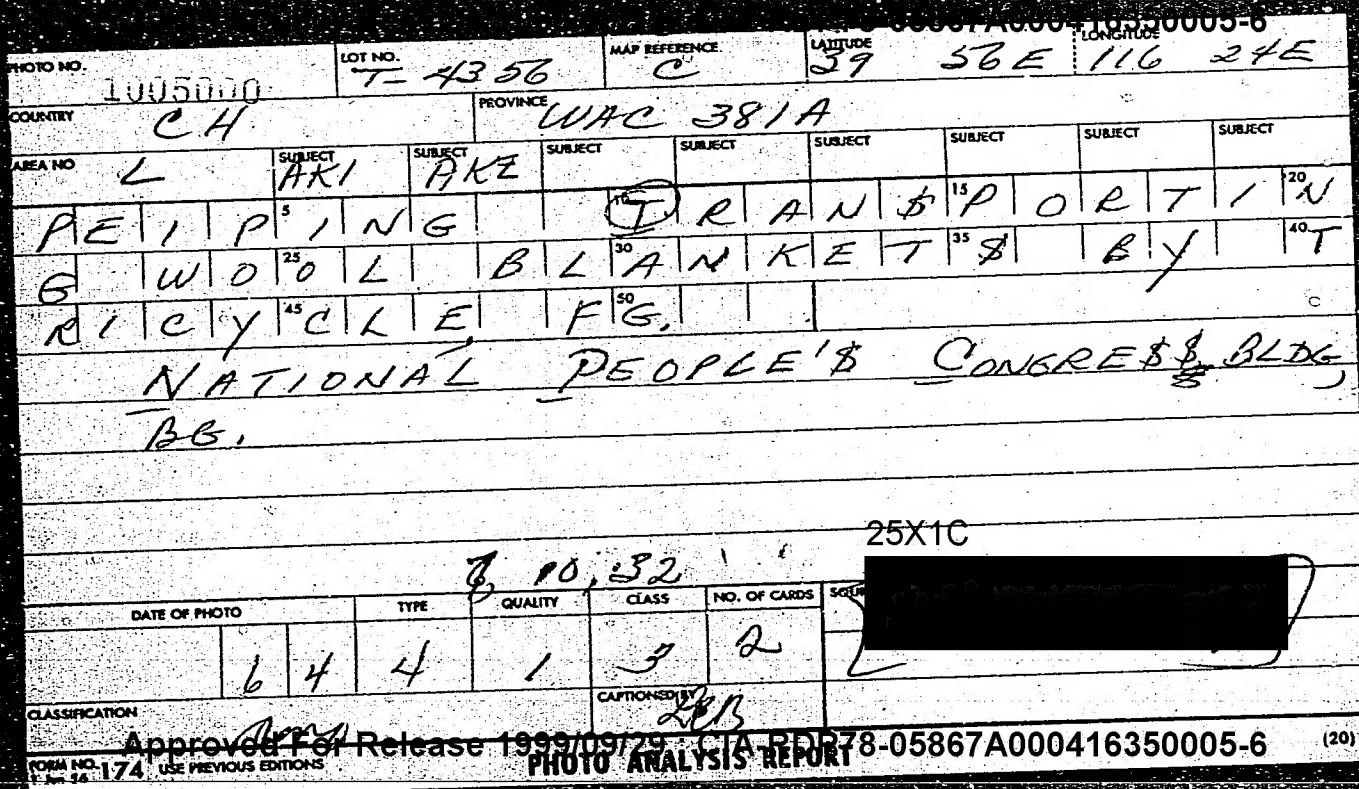 05867A000416350005-6
PHOTO NO. 1005000 LOT NO. T-4356 MAP REFERENCE C LATITUDE 39 56 E LONGITUDE 116 24 E
COUNTRY CH PROVINCE WAC 381A
AREA NO L SUBJECT AK1 SUBJECT AKZ SUBJECT SUBJECT SUBJECT SUBJECT SUBJECT SUBJECT
PEIPING TRAN$PORTIN
G WOOL BLANKET$ BY T
RICYCLE, FG.
NATIONAL PEOPLE'$ CONGRE$$ BLDG,
BG.
25X1C
10, 32
DATE OF PHOTO TYPE QUALITY CLASS NO. OF CARDS
6 4 4 1 3 2
CLASSIFICATION CAPTIONED BY
Approved For Release 1999/09/29 : CIA-RDP78-05867A000416350005-6
FORM NO. 174 USE PREVIOUS EDITIONS PHOTO ANALYSIS REPORT (20)